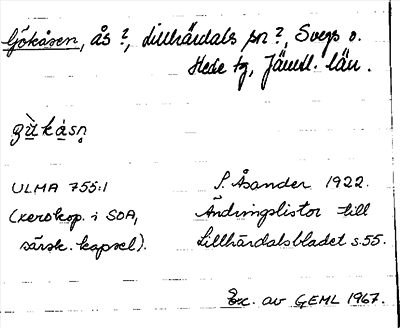 Gökåsen, ås?, Lillhärdals sn?, Svegs o.
Hede tg, Jämtl. län.
gʉ̀kásn̥
ULMA 755:1
S. Åsander 1922.
(xerokop. i SOA,
Ändringslistor till
särsk. kapsel).
Lillhärdalsbladet s. 55.
Exc. av GEML 1967.